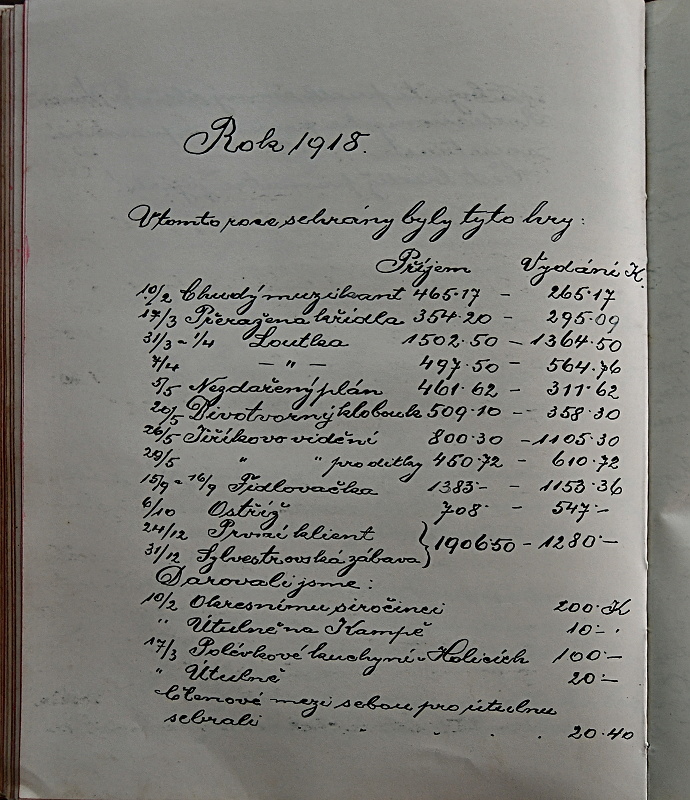 Rok 1918.
V tomto roce sehrány byly tyto hry:
Příjem Vydání K.
10/2 Chudý muzikant 465·17 – 265·17
17/3 Přeražena křídla 354·20 – 295·09
31/3 a 1/4 Loutka 1502·50 – 1364·50
7/4 — " — 497·50 – 564·76
5/5 Nezdařený plán 461·62 – 311·62
20/5 Divotvorný klobouk 509·10 – 358·30
26/5 Jiříkovo vidění 800·30 – 1105·30
29/5 " " pro dítky 450·72 – 610·72
15/9 a 16/9 Fidlovačka 1383·– – 1153·36
6/10 Ostříž 708· – 547·–
24/12 První klient
31/12 Sylvestrovská zábava } 1906·50 – 1280·–
Darovali jsme:
10/2 Okresnímu siročinci 200·K
" Útulně na Kampě 10·– ·
17/3 Polévkové kuchyni v Holicích 100·–
" Útulně 20·–
Členové mezi sebou pro útulnu
sebrali . . . 20·40